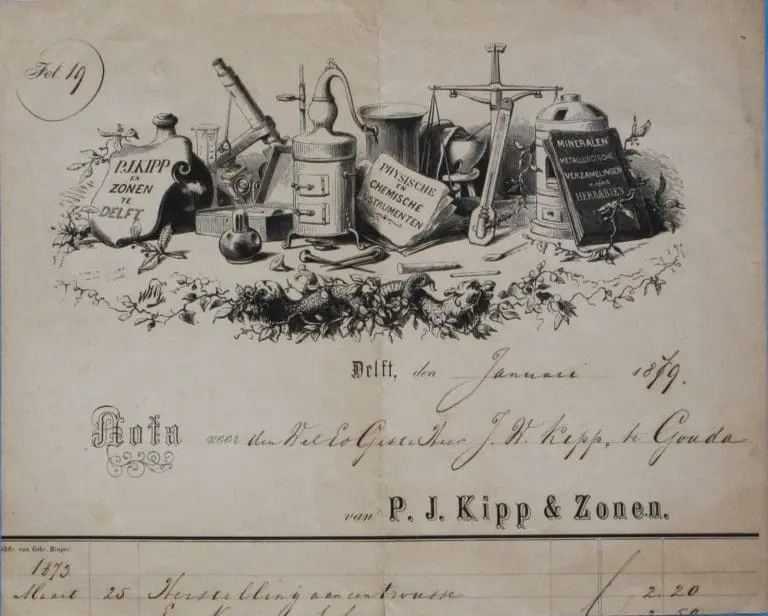 Fol. 19
P.J. KIPP
EN
ZONEN
TE
DELFT
PHYSISCHE
EN
CHEMISCHE
INSTRUMENTEN
MINERALEN
METALLURGISCHE
VERZAMELINGEN
HERBARIEN
Delft, den Januari 1879.
Nota voor den Wel Ed Geste Heer J. W. Kipp, te Gouda
van P. J. Kipp & Zonen.
van Gebr. Binger.
1873
Maart 25 Herstelling aan een trousse 2.20
2.50